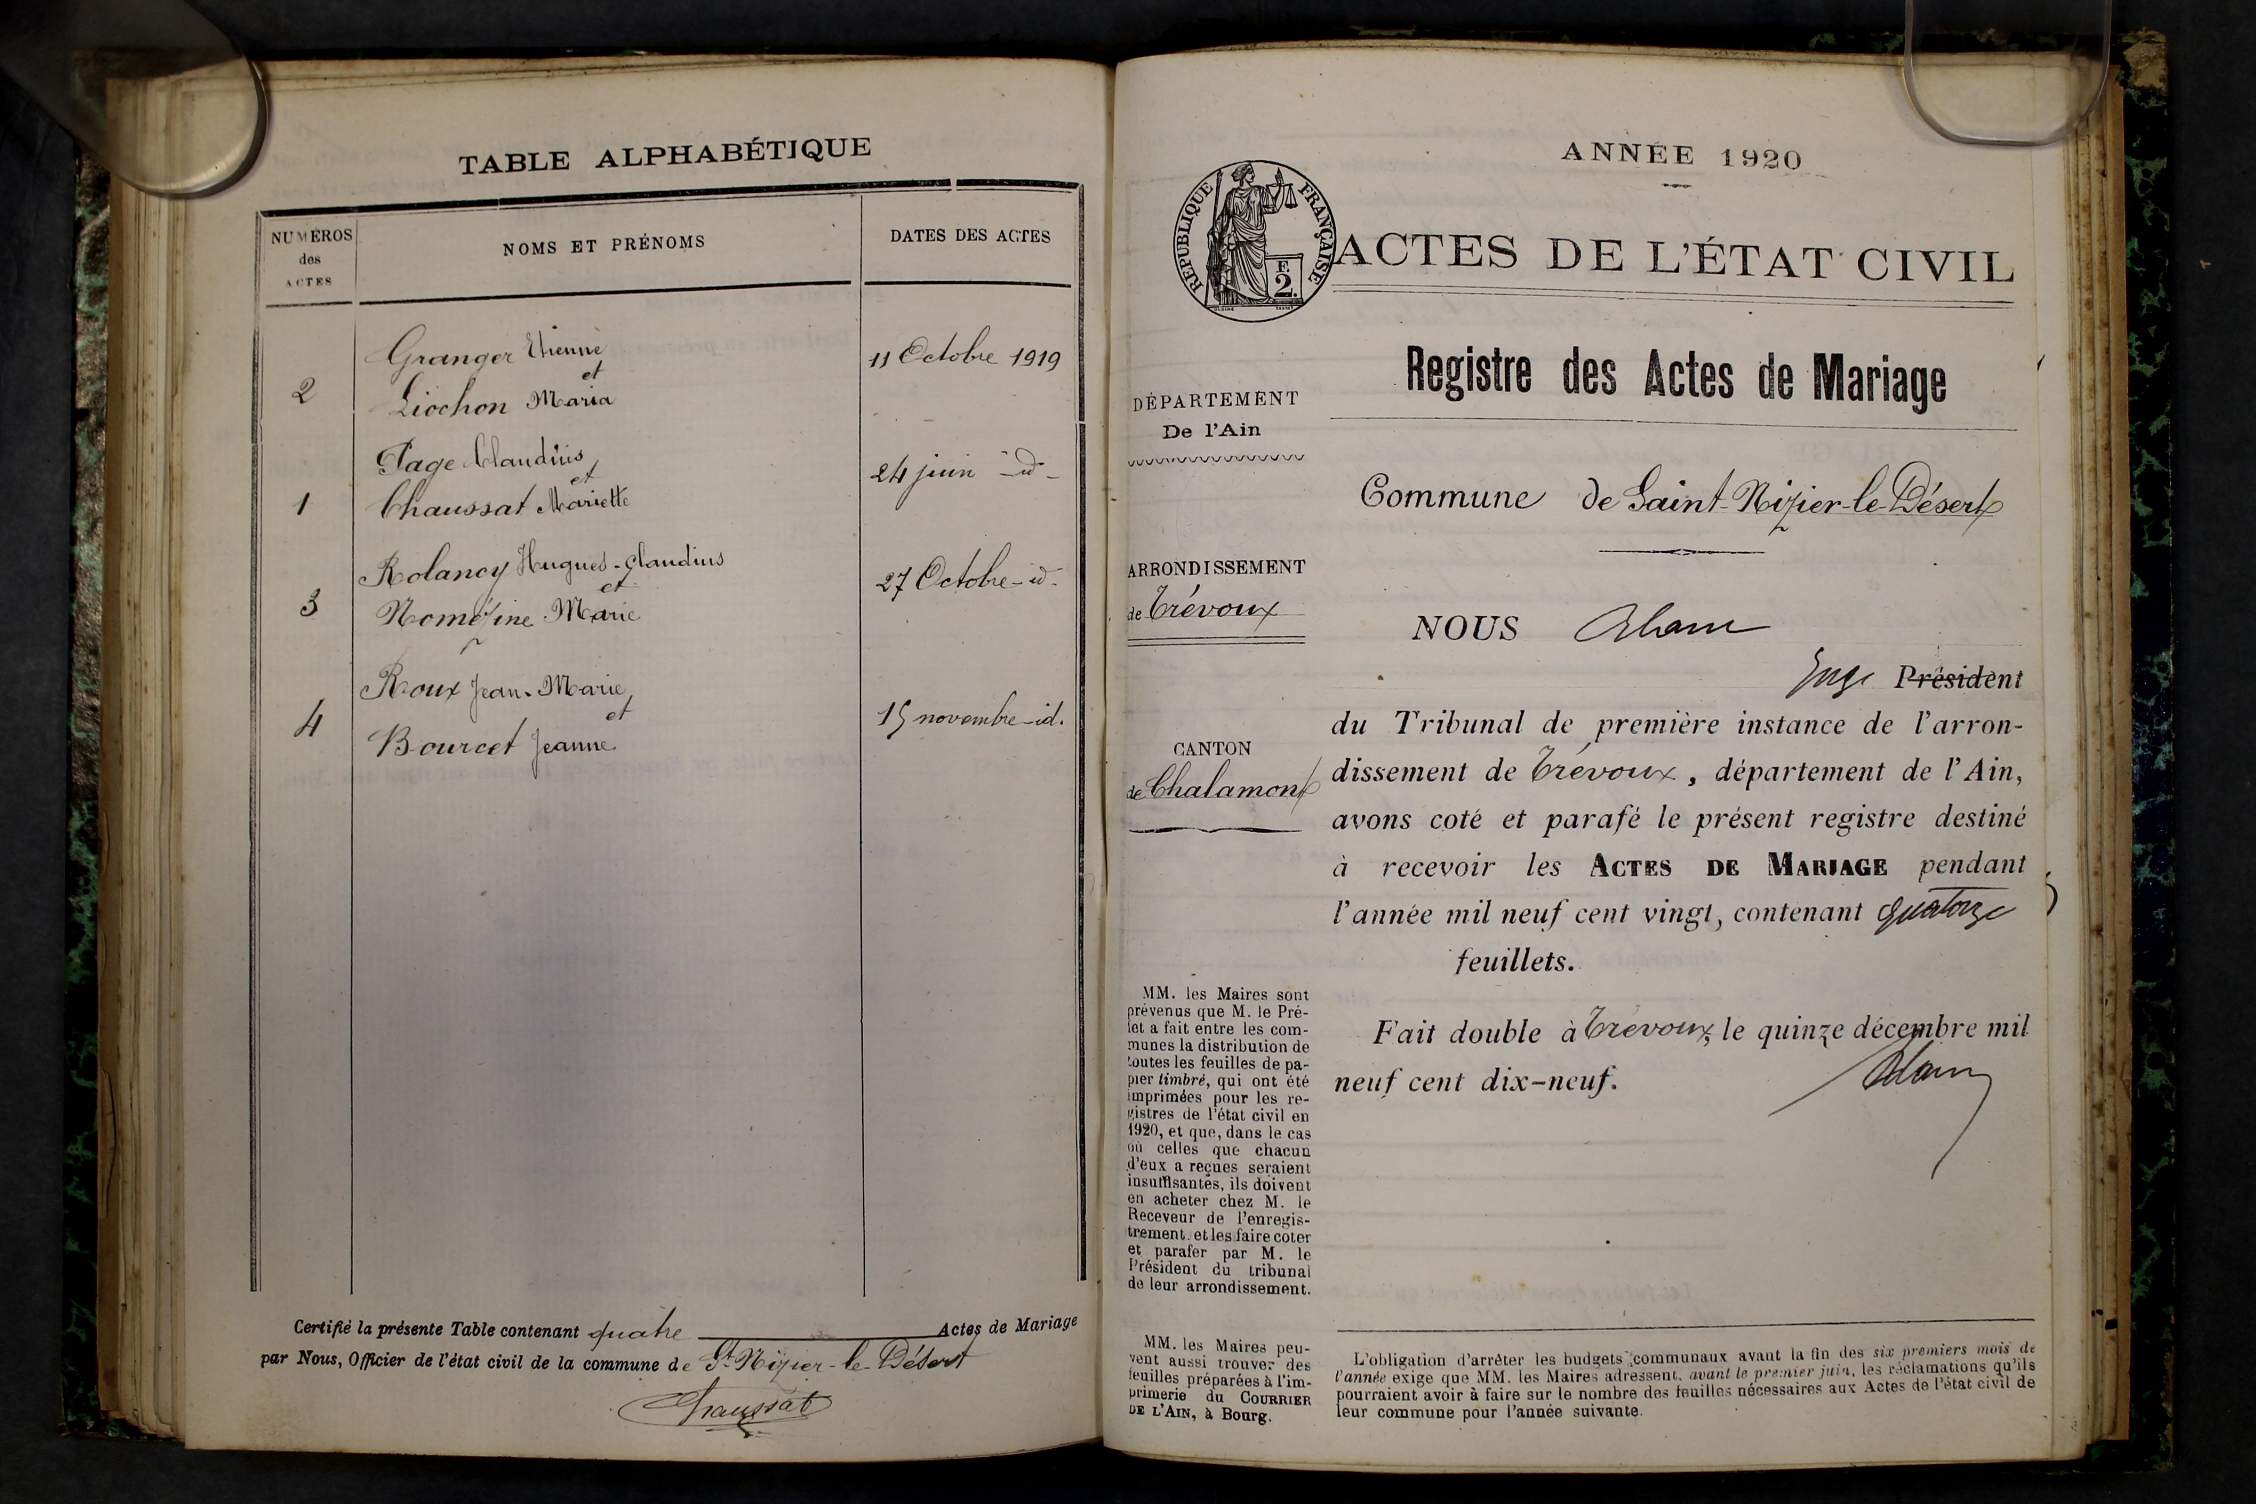 TABLE ALPHABÉTIQUE
NUMÉROS
des
ACTES
NOMS ET PRÉNOMS
DATES DES ACTES
Granger Etienne
11 Octobre 1919
et
2
Liochon Maria
Page Claudius
24 juin -id-
et
1
Chaussat Mariette
Rolancy Hugues-Claudius
27 Octobre-id-
et
3
Nomézine Marie
Roux Jean-Marie
15 novembre-id.
et
4
Bourcet Jeanne
Certifié la présente Table contenant quatre Actes de Mariage
par Nous, Officier de l'état civil de la commune de St Nizier-le-Désert
Chaussat
ANNÉE 1920
RÉPUBLIQUE FRANÇAISE
F.
2.
ACTES DE L'ÉTAT CIVIL
Registre des Actes de Mariage
DÉPARTEMENT
De l'Ain
Commune de Saint-Nizier-le-Désert
ARRONDISSEMENT
de Trévoux
CANTON
de Chalamont
NOUS Adam
Juge Président
du Tribunal de première instance de l'arron-
dissement de Trévoux, département de l'Ain,
avons coté et parafé le présent registre destiné
à recevoir les ACTES DE MARIAGE pendant
l'année mil neuf cent vingt, contenant quatorze
feuillets.
Fait double à Trévoux, le quinze décembre mil
neuf cent dix-neuf.
Adam
MM. les Maires sont
prévenus que M. le Pré-
fet a fait entre les com-
munes la distribution de
toutes les feuilles de pa-
pier timbré, qui ont été
imprimées pour les re-
gistres de l'état civil en
1920, et que, dans le cas
où celles que chacun
d'eux a reçues seraient
insuffisantes, ils doivent
en acheter chez M. le
Receveur de l'enregis-
trement et les faire coter
et parafer par M. le
Président du tribunal
de leur arrondissement.
MM. les Maires peu-
vent aussi trouver des
feuilles préparées à l'im-
primerie du COURRIER
DE L'AIN, à Bourg.
L'obligation d'arrêter les budgets communaux avant la fin des six premiers mois de
l'année exige que MM. les Maires adressent, avant le premier juin, les réclamations qu'ils
pourraient avoir à faire sur le nombre des feuilles nécessaires aux Actes de l'état civil de
leur commune pour l'année suivante.